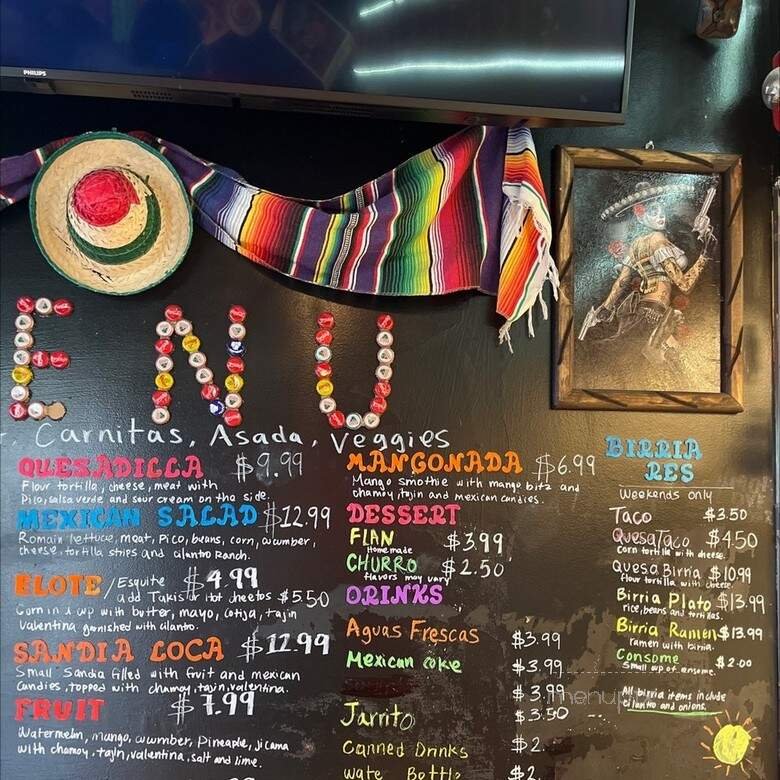 PHILIPS
ENU
Carnitas, Asada, Veggies
QUESADILLA $9.99
Flour tortilla, cheese, meat with
Pico, salsa verde and sour cream on the side.
MEXICAN SALAD $12.99
Romain lettuce, meat, Pico, beans, corn, cucumber,
cheese, tortilla strips and cilantro Ranch.
ELOTE / Esquite $4.99
add Takis or Hot cheetos $5.50
Corn in a cup with butter, mayo, cotija, tajin
Valentina garnished with cilantro.
SANDIA LOCA $12.99
Small Sandia filled with fruit and mexican
Candies, topped with chamoy, tajin, valentina.
FRUIT $7.99
Watermelon, mango, cucumber, Pineaple, jicama
with chamoy, tajin, valentina, salt and lime.
MANGONADA $6.99
Mango Smothie with mango bitz and
chamoy, tajin and mexican candies.
DESSERT
FLAN $3.99
Home made
CHURRO $2.50
flavors may vary
DRINKS
Aguas Frescas $3.99
Mexican coke $3.99
$3.99
Jarrito $3.50
Canned Drinks $2.
wate Bottle $2.
BIRRIA
RES
Weekends only
Taco $3.50
QuesaTaco $4.50
Corn tortilla with cheese.
Quesa Birria $10.99
flour tortilla with cheese.
Birria Plato $13.99
rice, beans and tortillas.
Birria Ramen $13.99
ramen with birria.
Consome $2.00
Small cup of consome.
All birria items include
cilantro and onions.